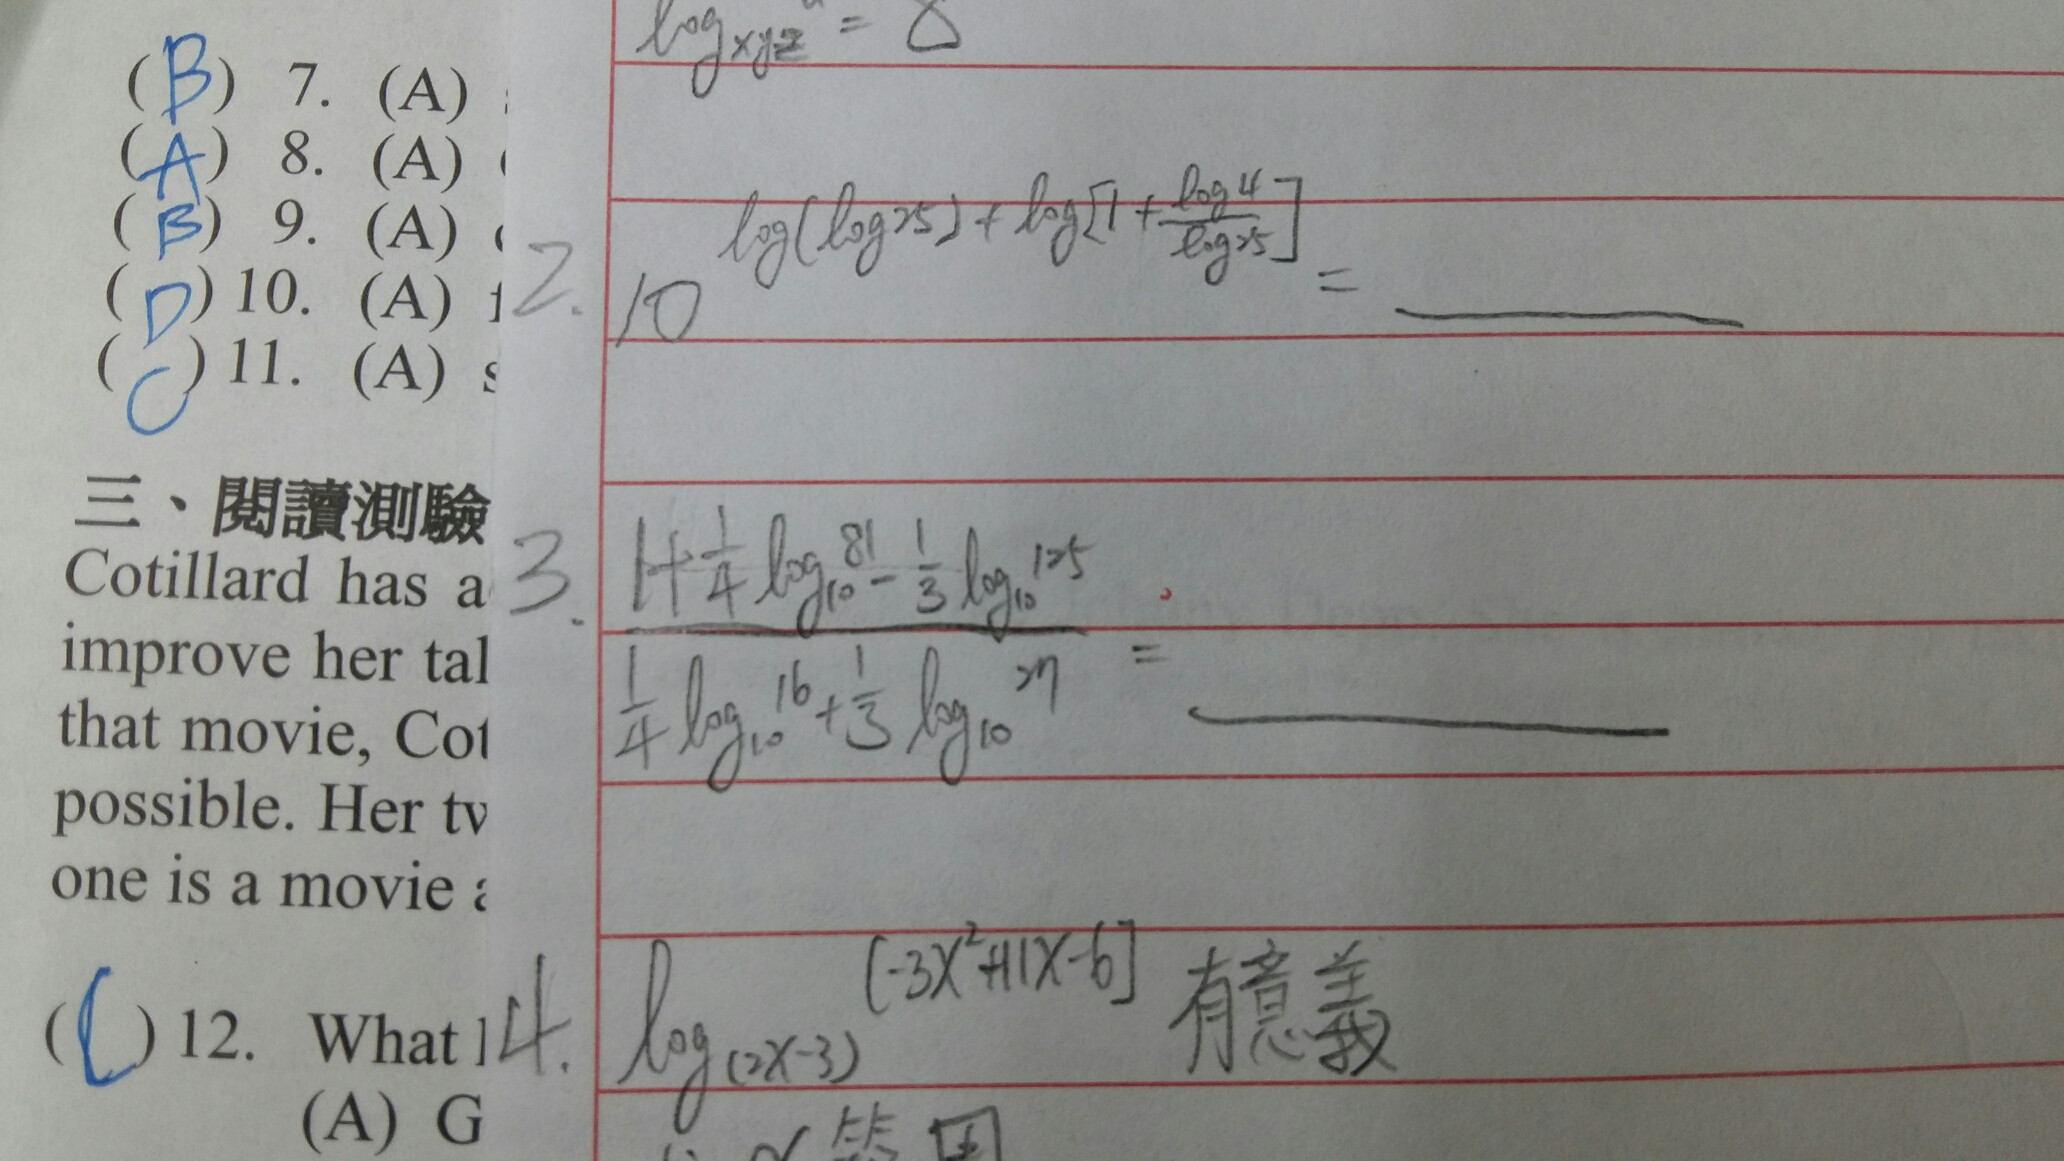 (B) 7. (A)
(A) 8. (A)
(B) 9. (A)
(D) 10. (A)
(C) 11. (A) s
三、閱讀測驗
Cotillard has a
improve her tal
that movie, Cot
possible. Her tw
one is a movie a
(C) 12. What l
(A) G
log xyz = 8
2. 10^log(log25)+log[1+log4/log25] =
3. (1+1/4 log₁₀81 - 1/3 log₁₀125) / (1/4 log₁₀16 + 1/3 log₁₀27) =
4. log(2x-3) [-3x²+11x-6] 有意義
範圍